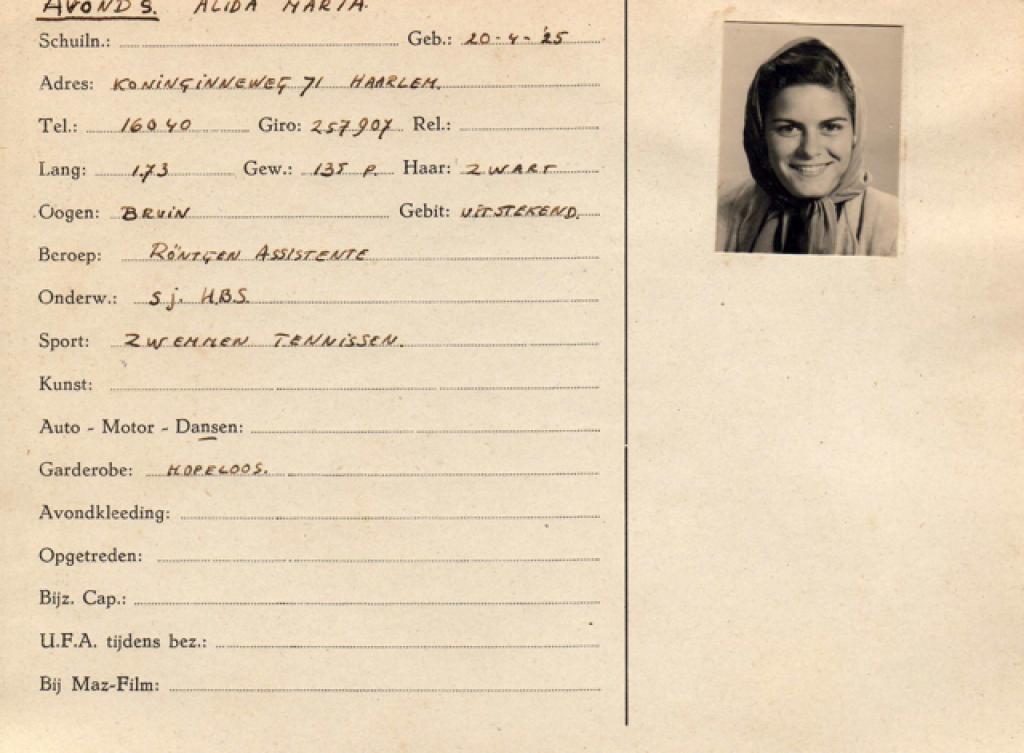 AVONDS. ALIDA MARIA.
Schuiln.: Geb.: 20-4-'25
Adres: KONINGINNEWEG 71 HAARLEM.
Tel.: 16040 Giro: 257907 Rel.:
Lang: 1.73 Gew.: 135 P. Haar: ZWART
Oogen: BRUIN Gebit: UITSTEKEND.
Beroep: RÖNTGEN ASSISTENTE
Onderw.: 5 j. H.B.S.
Sport: ZWEMMEN TENNISSEN.
Kunst:
Auto - Motor - Dansen:
Garderobe: HOPELOOS.
Avondkleeding:
Opgetreden:
Bijz. Cap.:
U.F.A. tijdens bez.:
Bij Maz-Film: